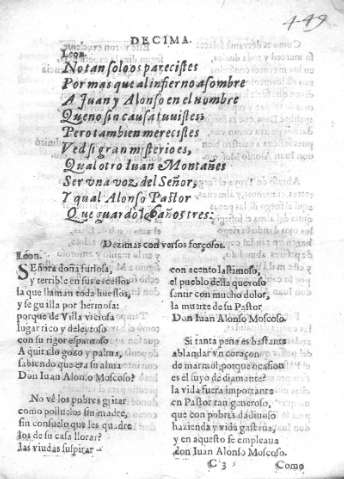 449
DECIMA.
Leon.
No tan solo os parecistes
Por mas que al infierno asombre
A Juan y Alonso en el nombre
Que no sin causa tuuistes;
Pero tambien merecistes
Ved si gran misterio es,
Qual otro Iuan Montañes
Ser vna voz del Señor,
Y qual Alonso Pastor
Que guardo años tres.
Dezimas con versos forçosos.
Leon.
Señora doña furiosa,
y terrible en sus excessos
la que llaman toda huessos,
y se guilla por hermosa:
porque de Villa viciosa
lugar rico y deleytoso
con su rigor espantoso
A quitado gozo y palma,
sabiendo que era su alma
Don Iuan Alonso Moscoso?
No vè los pobres gritar
como polluelos sin madre,
sin consuelo que les quadre
los de su casa llorar?
las viudas suspirar
con acento lastimoso,
el pueblo della quexoso
sentir con mucho dolor,
la muerte de su Pastor
Don Iuan Alonso Moscoso.
Si tanta pena es bastante
ablandar vn coraçon
de marmol, porque ocasion
es el suyo de diamante?
la vida fuera importante
en Pastor tan generoso,
que con pobres dadiuoso
hazienda y vida gastaua,
y en aquesto se empleaua
don Iuan Alonso Moscoso.
C 3 Como